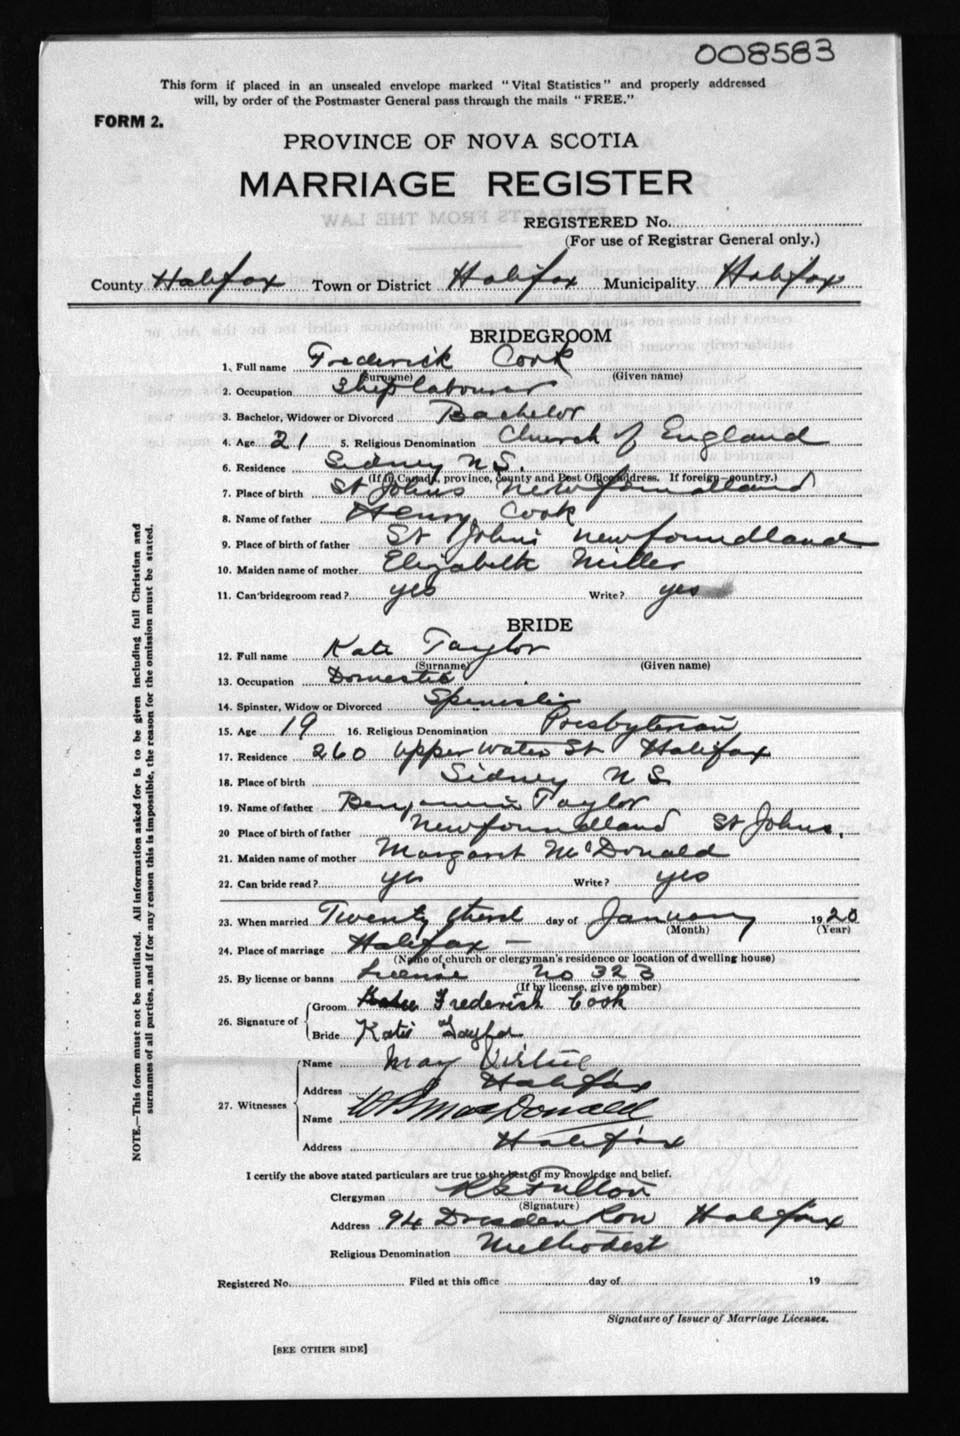 008583
This form if placed in an unsealed envelope marked "Vital Statistics" and properly addressed
will, by order of the Postmaster General pass through the mails "FREE."
FORM 2.
PROVINCE OF NOVA SCOTIA
MARRIAGE REGISTER
REGISTERED No.
(For use of Registrar General only.)
County Halifax Town or District Halifax Municipality Halifax
BRIDEGROOM
1. Full name Frederick Cook
(Surname) (Given name)
2. Occupation Ship labourer
3. Bachelor, Widower or Divorced Bachelor
4. Age 21 5. Religious Denomination Church of England
6. Residence Sidney N.S.
(If in Canada, province, county and Post Office address. If foreign—country.)
7. Place of birth St Johns Newfoundland
8. Name of father Henry Cook
9. Place of birth of father St Johns Newfoundland
10. Maiden name of mother Elizabeth Miller
11. Can bridegroom read? yes Write? yes
BRIDE
12. Full name Kate Taylor
(Surname) (Given name)
13. Occupation Domestic
14. Spinster, Widow or Divorced Spinster
15. Age 19 16. Religious Denomination Presbyterian
17. Residence 260 Upper Water St Halifax
18. Place of birth Sidney N S.
19. Name of father Benjamin Taylor
20 Place of birth of father Newfoundland St Johns.
21. Maiden name of mother Margaret McDonald
22. Can bride read? yes Write? yes
23. When married Twenty third day of January 1920
(Month) (Year)
24. Place of marriage Halifax —
(Name of church or clergyman's residence or location of dwelling house)
25. By license or banns License No 323
(If by license, give number)
26. Signature of
Groom Frederish Cook
Bride Katie Taylor
27. Witnesses
Name May Virtue
Address Halifax
Name W B MacDonald
Address Halifax
I certify the above stated particulars are true to the best of my knowledge and belief.
Clergyman Fulton
(Signature)
Address 94 Dresden Row Halifax
Religious Denomination Methodist
Registered No. Filed at this office day of 19
Signature of Issuer of Marriage Licenses.
[SEE OTHER SIDE]
NOTE.—This form must not be mutilated. All information asked for is to be given including full Christian and
surnames of all parties, and if for any reason this is impossible, the reason for the omission must be stated.